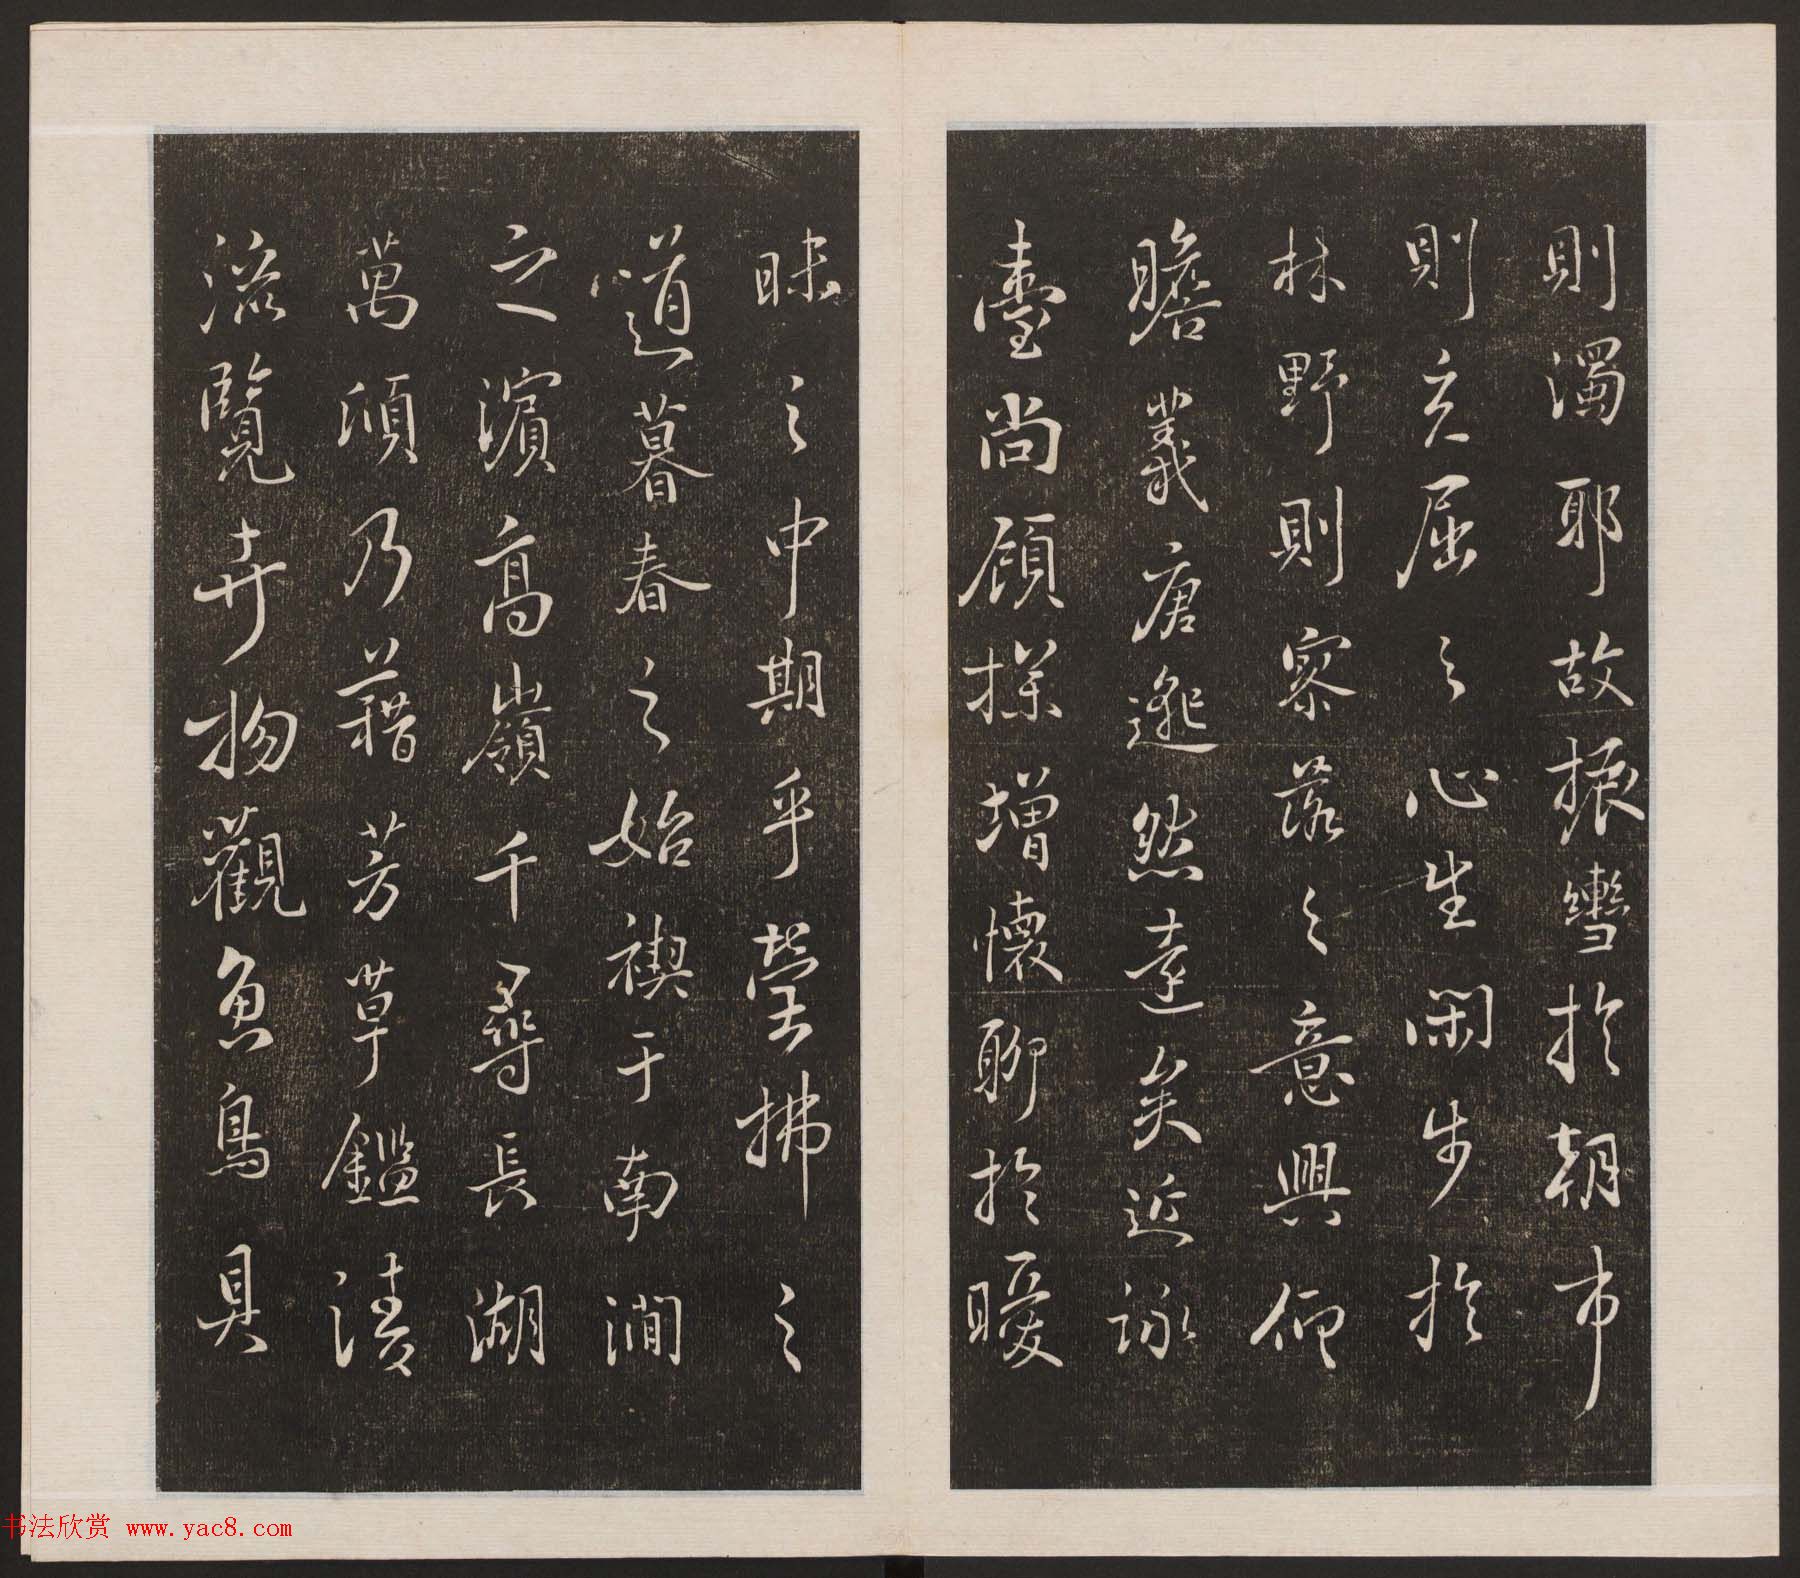 則濁耶故振轡於朝市
則充屈之心生閑步於
林野則寮落之意興仰
瞻羲唐邈然遠矣近詠
臺尚顧探增懷聊於曖
昧之中期乎瑩拂之
道暮春之始禊于南澗
之濱高嶺千尋長湖
萬頃乃藉芳草鑑清
流覽卉物觀魚鳥具
书法欣赏 www.yac8.com